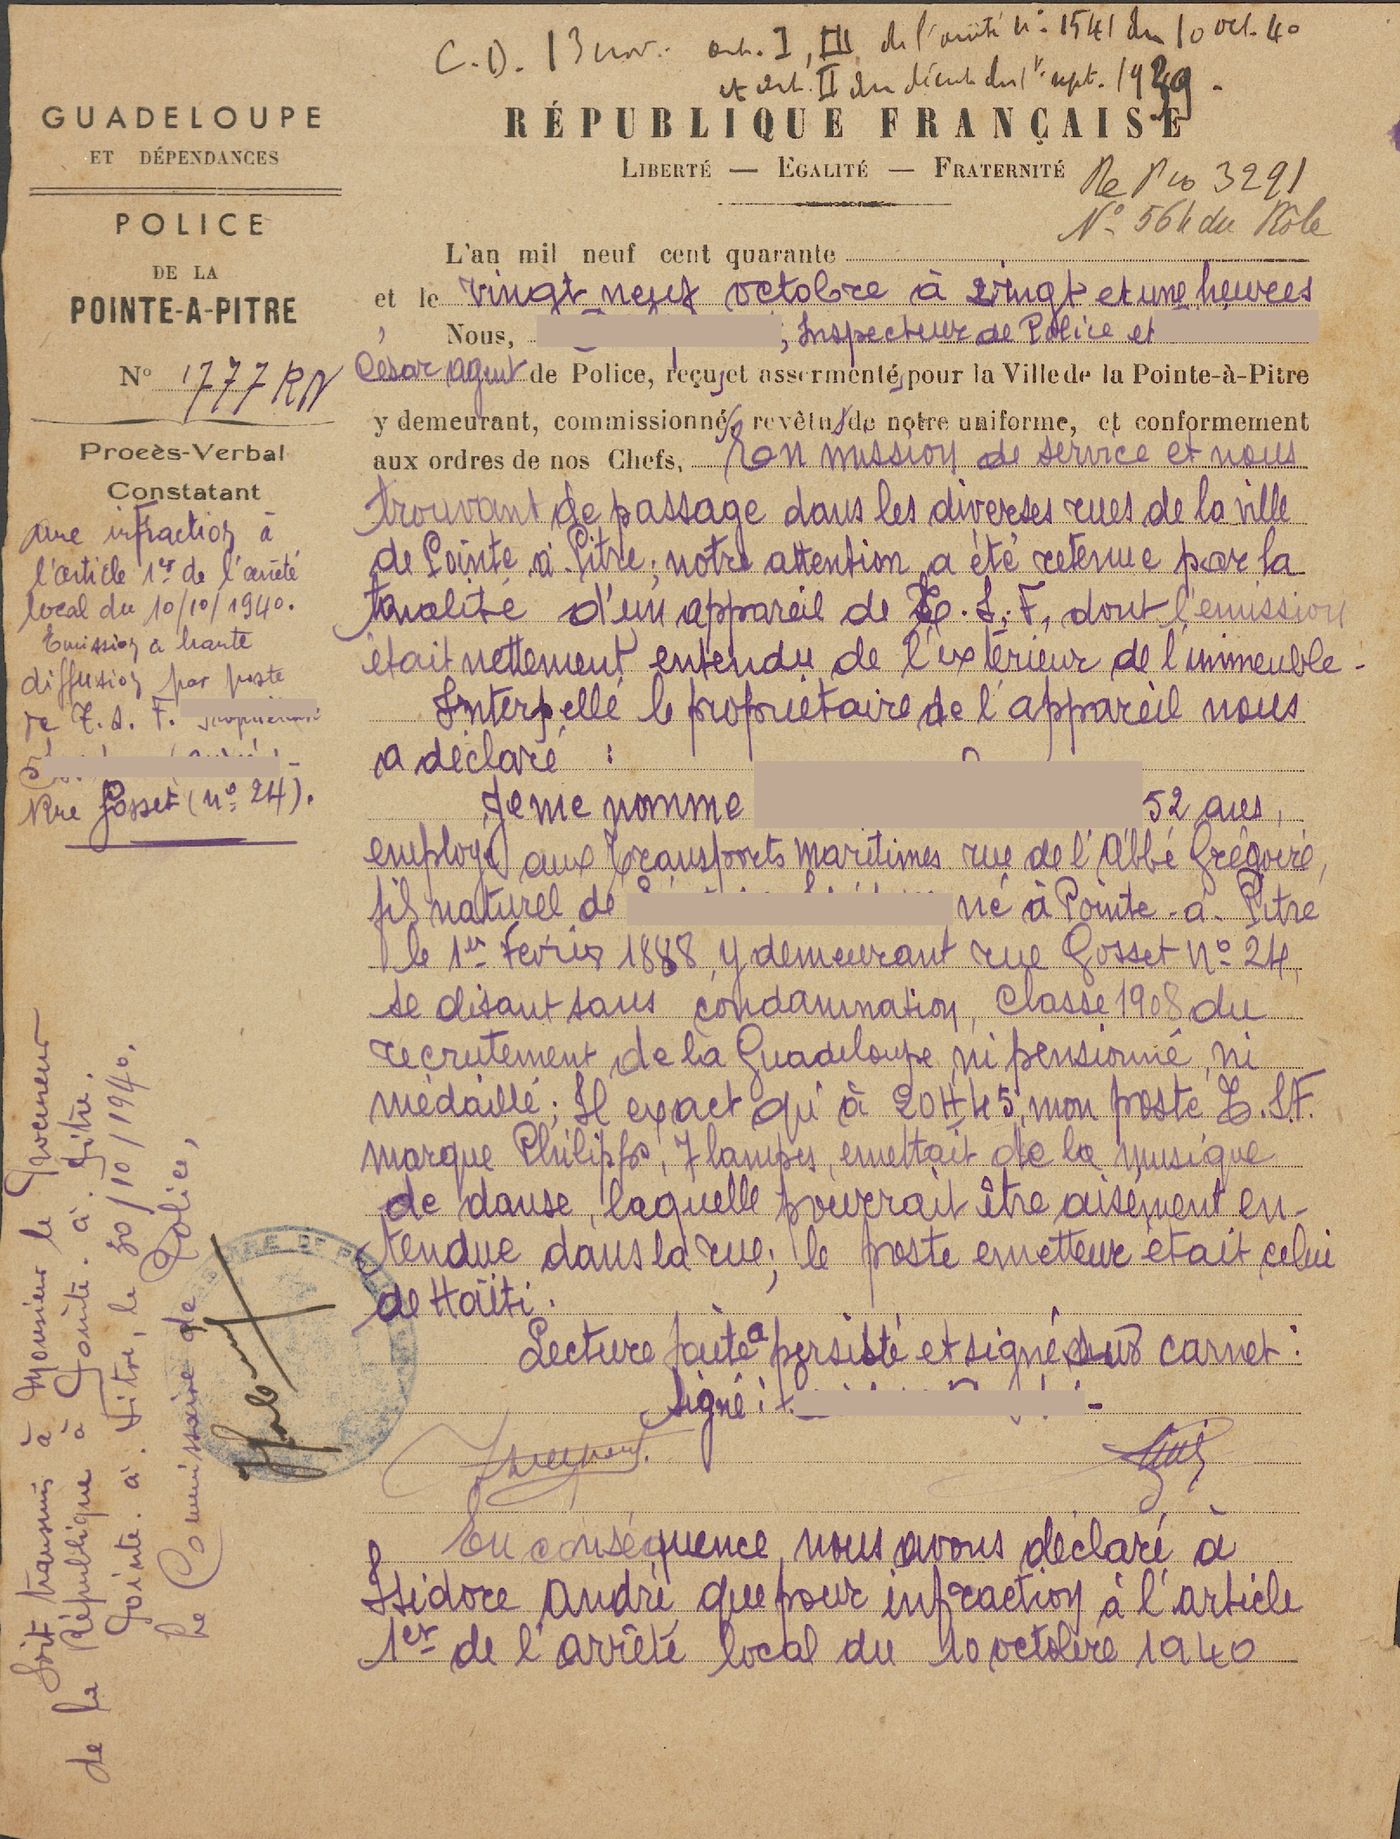 C.D. 13 nov. art. I, III de l'arrêté n° 1541 du 10 oct. 40
et art. II du décret du 1er sept. 1939.
GUADELOUPE
ET DÉPENDANCES
POLICE
DE LA
POINTE-A-PITRE
N° 1777 RN
Procès-Verbal
Constatant
une infraction à
l'article 1er de l'arrêté
local du 10/10/1940.
Emission à haute
diffusion par poste
de T. S. F.
rue Gosset (n° 24).
RÉPUBLIQUE FRANÇAISE
LIBERTÉ — EGALITÉ — FRATERNITÉ
Re Pro 3291
N° 564 du Rôle
L'an mil neuf cent quarante
et le vingt neuf octobre à vingt et une heures
Nous, , Inspecteur de Police et
César agent de Police, reçus et assermentés pour la Ville de la Pointe-à-Pitre
y demeurant, commissionnés, revêtus de notre uniforme, et conformement
aux ordres de nos Chefs, En mission de service et nous
trouvant de passage dans les diverses rues de la ville
de Pointe à Pitre; notre attention a été retenue par la
tonalité d'un appareil de T. S. F, dont l'emission
était nettement entendu de l'extérieur de l'immeuble -
Interpellé le propriétaire de l'appareil nous
a déclaré :
Je me nomme 52 ans,
employé aux transports maritimes rue de l'Abbé Grégoire,
fils naturel de né à Pointe-à-Pitre
le 1er Fevrier 1888, y demeurant rue Gosset n° 24,
se disant sans condamnation, Classe 1908 du
recrutement de la Guadeloupe, ni pensionné, ni
médaillé; Il exact qu'à 20H45, mon poste T.S.F.
marque Philipps, 7 lampes, emettait de la musique
de danse, laquelle pouvrait être aisément en-
tendue dans la rue; le poste emetteur était celui
de Haïti.
Lecture faite a persisté et signé sur carnet :
Signé :
En conséquence, nous avons déclaré à
Isidore André que pour infraction à l'article
1er de l'arrêté local du 10 octobre 1940
Soit transmis à Monsieur le Procureur
de la République à Pointe-à-Pitre.
Pointe-à-Pitre, le 30/10/1940.
Le Commissaire de Police,